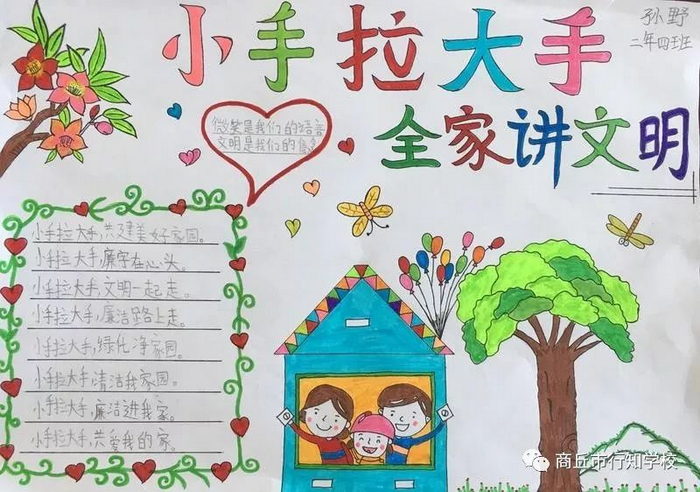 小手拉大手
孙野
二年四班
全家讲文明
微笑是我们的语言
文明是我们的信念
小手拉大手,共建美好家园。
小手拉大手,廉字在心头。
小手拉大手,文明一起走。
小手拉大手,廉洁路上走。
小手拉大手,绿化净家园。
小手拉大手,清洁我家园。
小手拉大手,廉洁进我家。
小手拉大手,共爱我的家。
商丘市行知学校